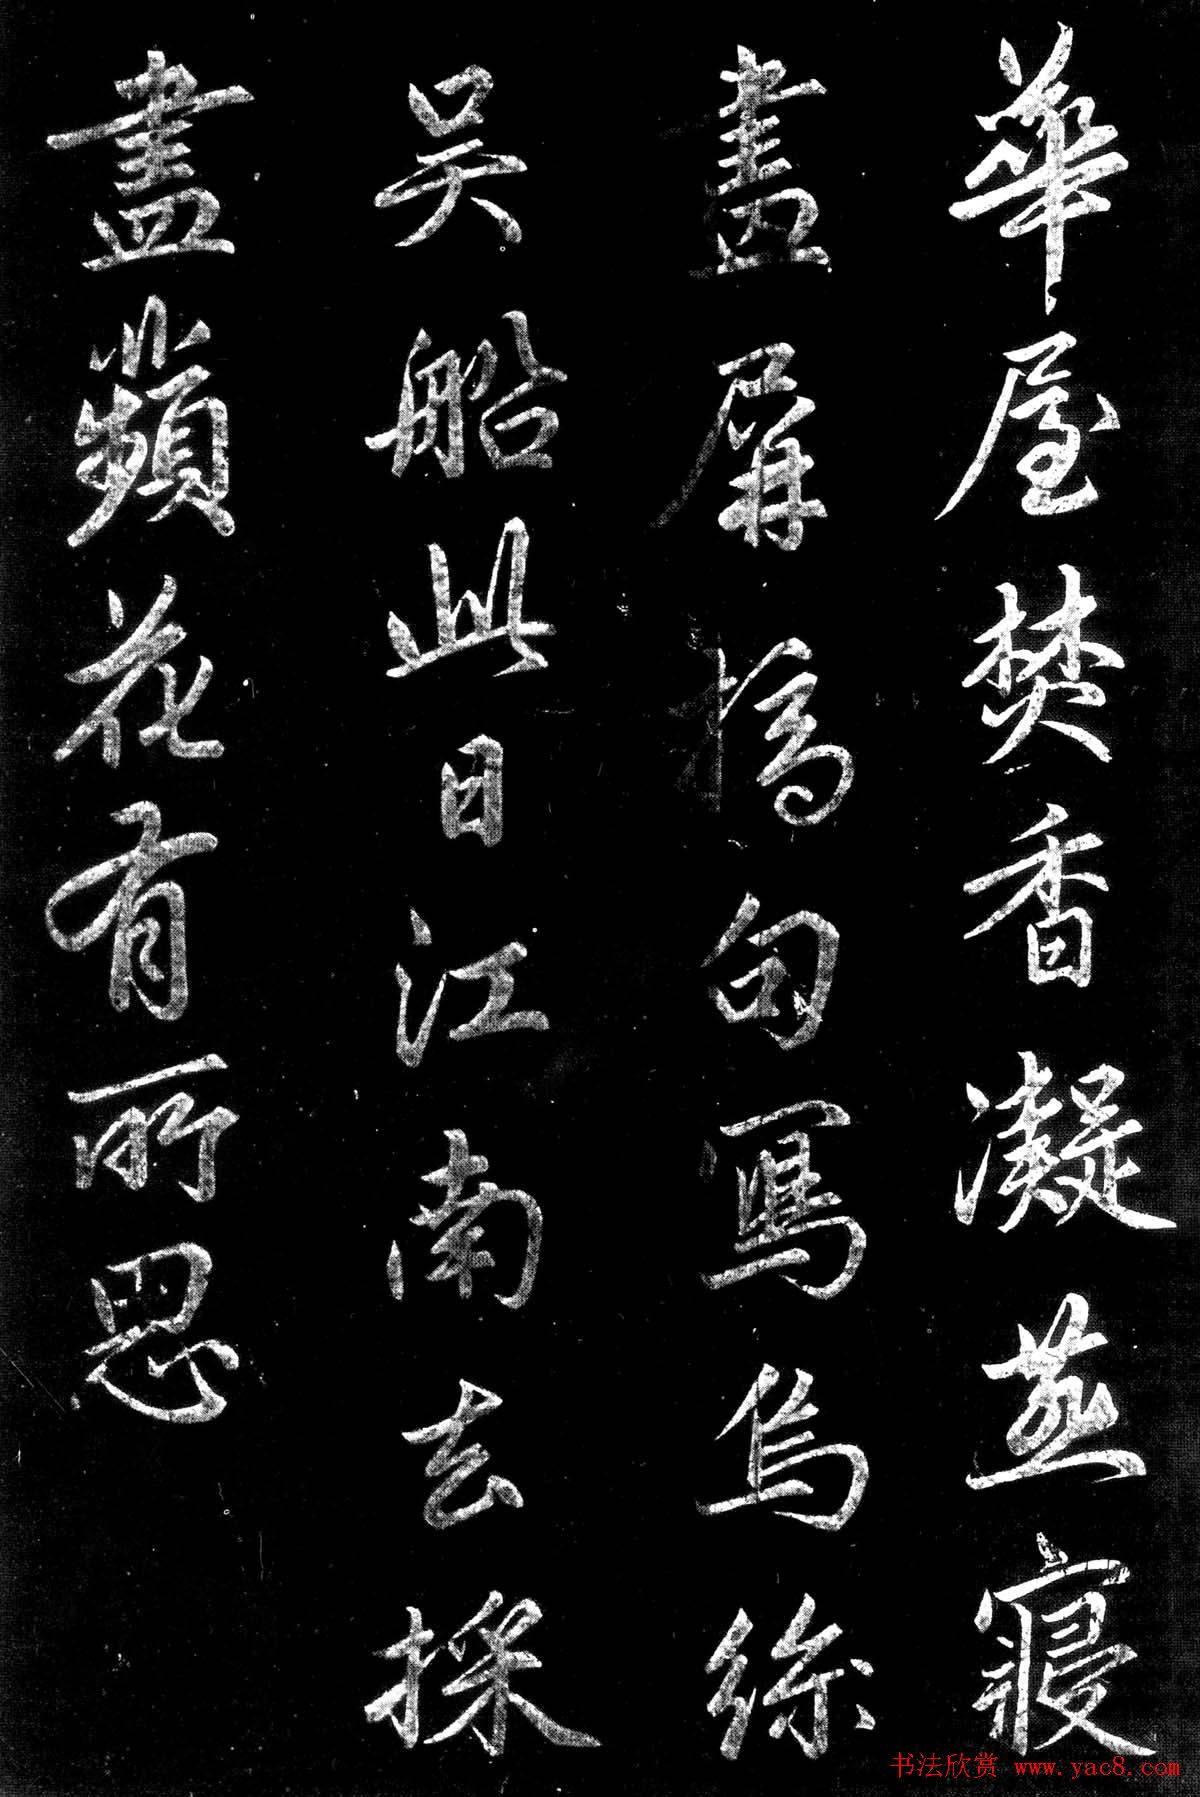 華屋焚香凝燕寢
畫屏摘句寫烏絲
吳船此日江南去採
盡蘋花有所思
书法欣赏 www.yac8.com